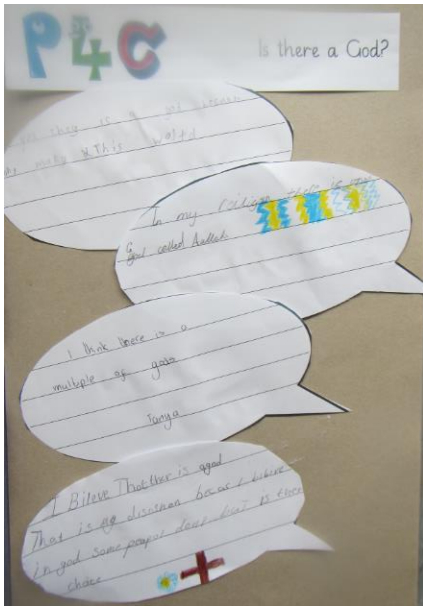 P4C
Is there a God?
yes they is a god
make This world
In my religon there is
god called Aallah
I think there is a
multiple of gods
Tanya
I Bileve That ther is a god
That is disishon becaus I bileve
in god some peopol dont
choice